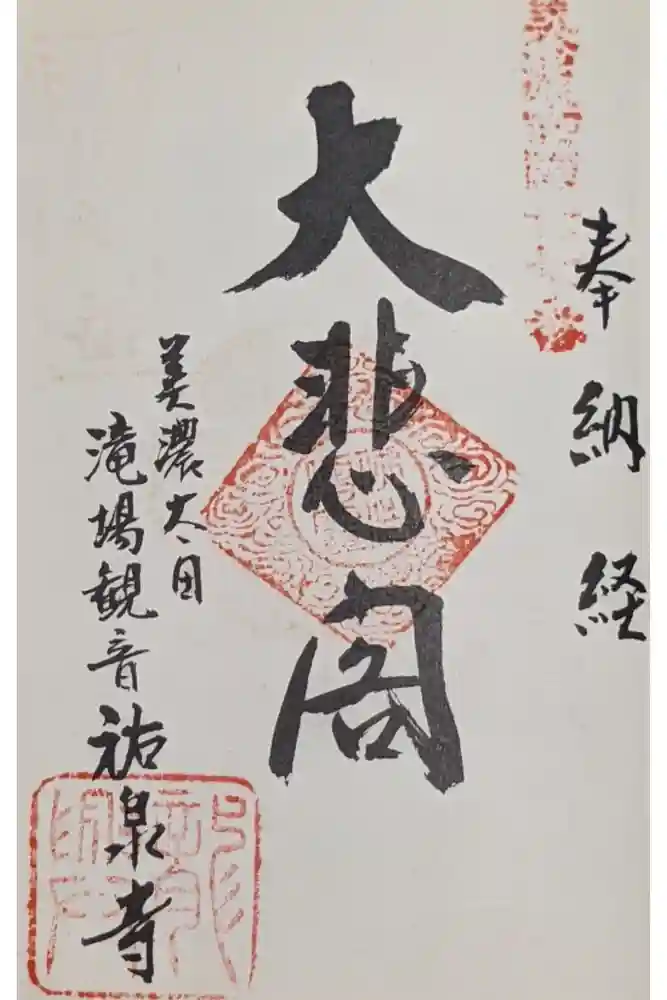 奉納経
大悲閣
美濃太田
滝場観音祐泉寺